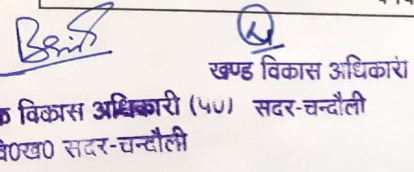 खण्ड विकास अधिकारी
विकास अधिकारी (पं०) सदर-चन्दौली
वि०ख० सदर-चन्दौली